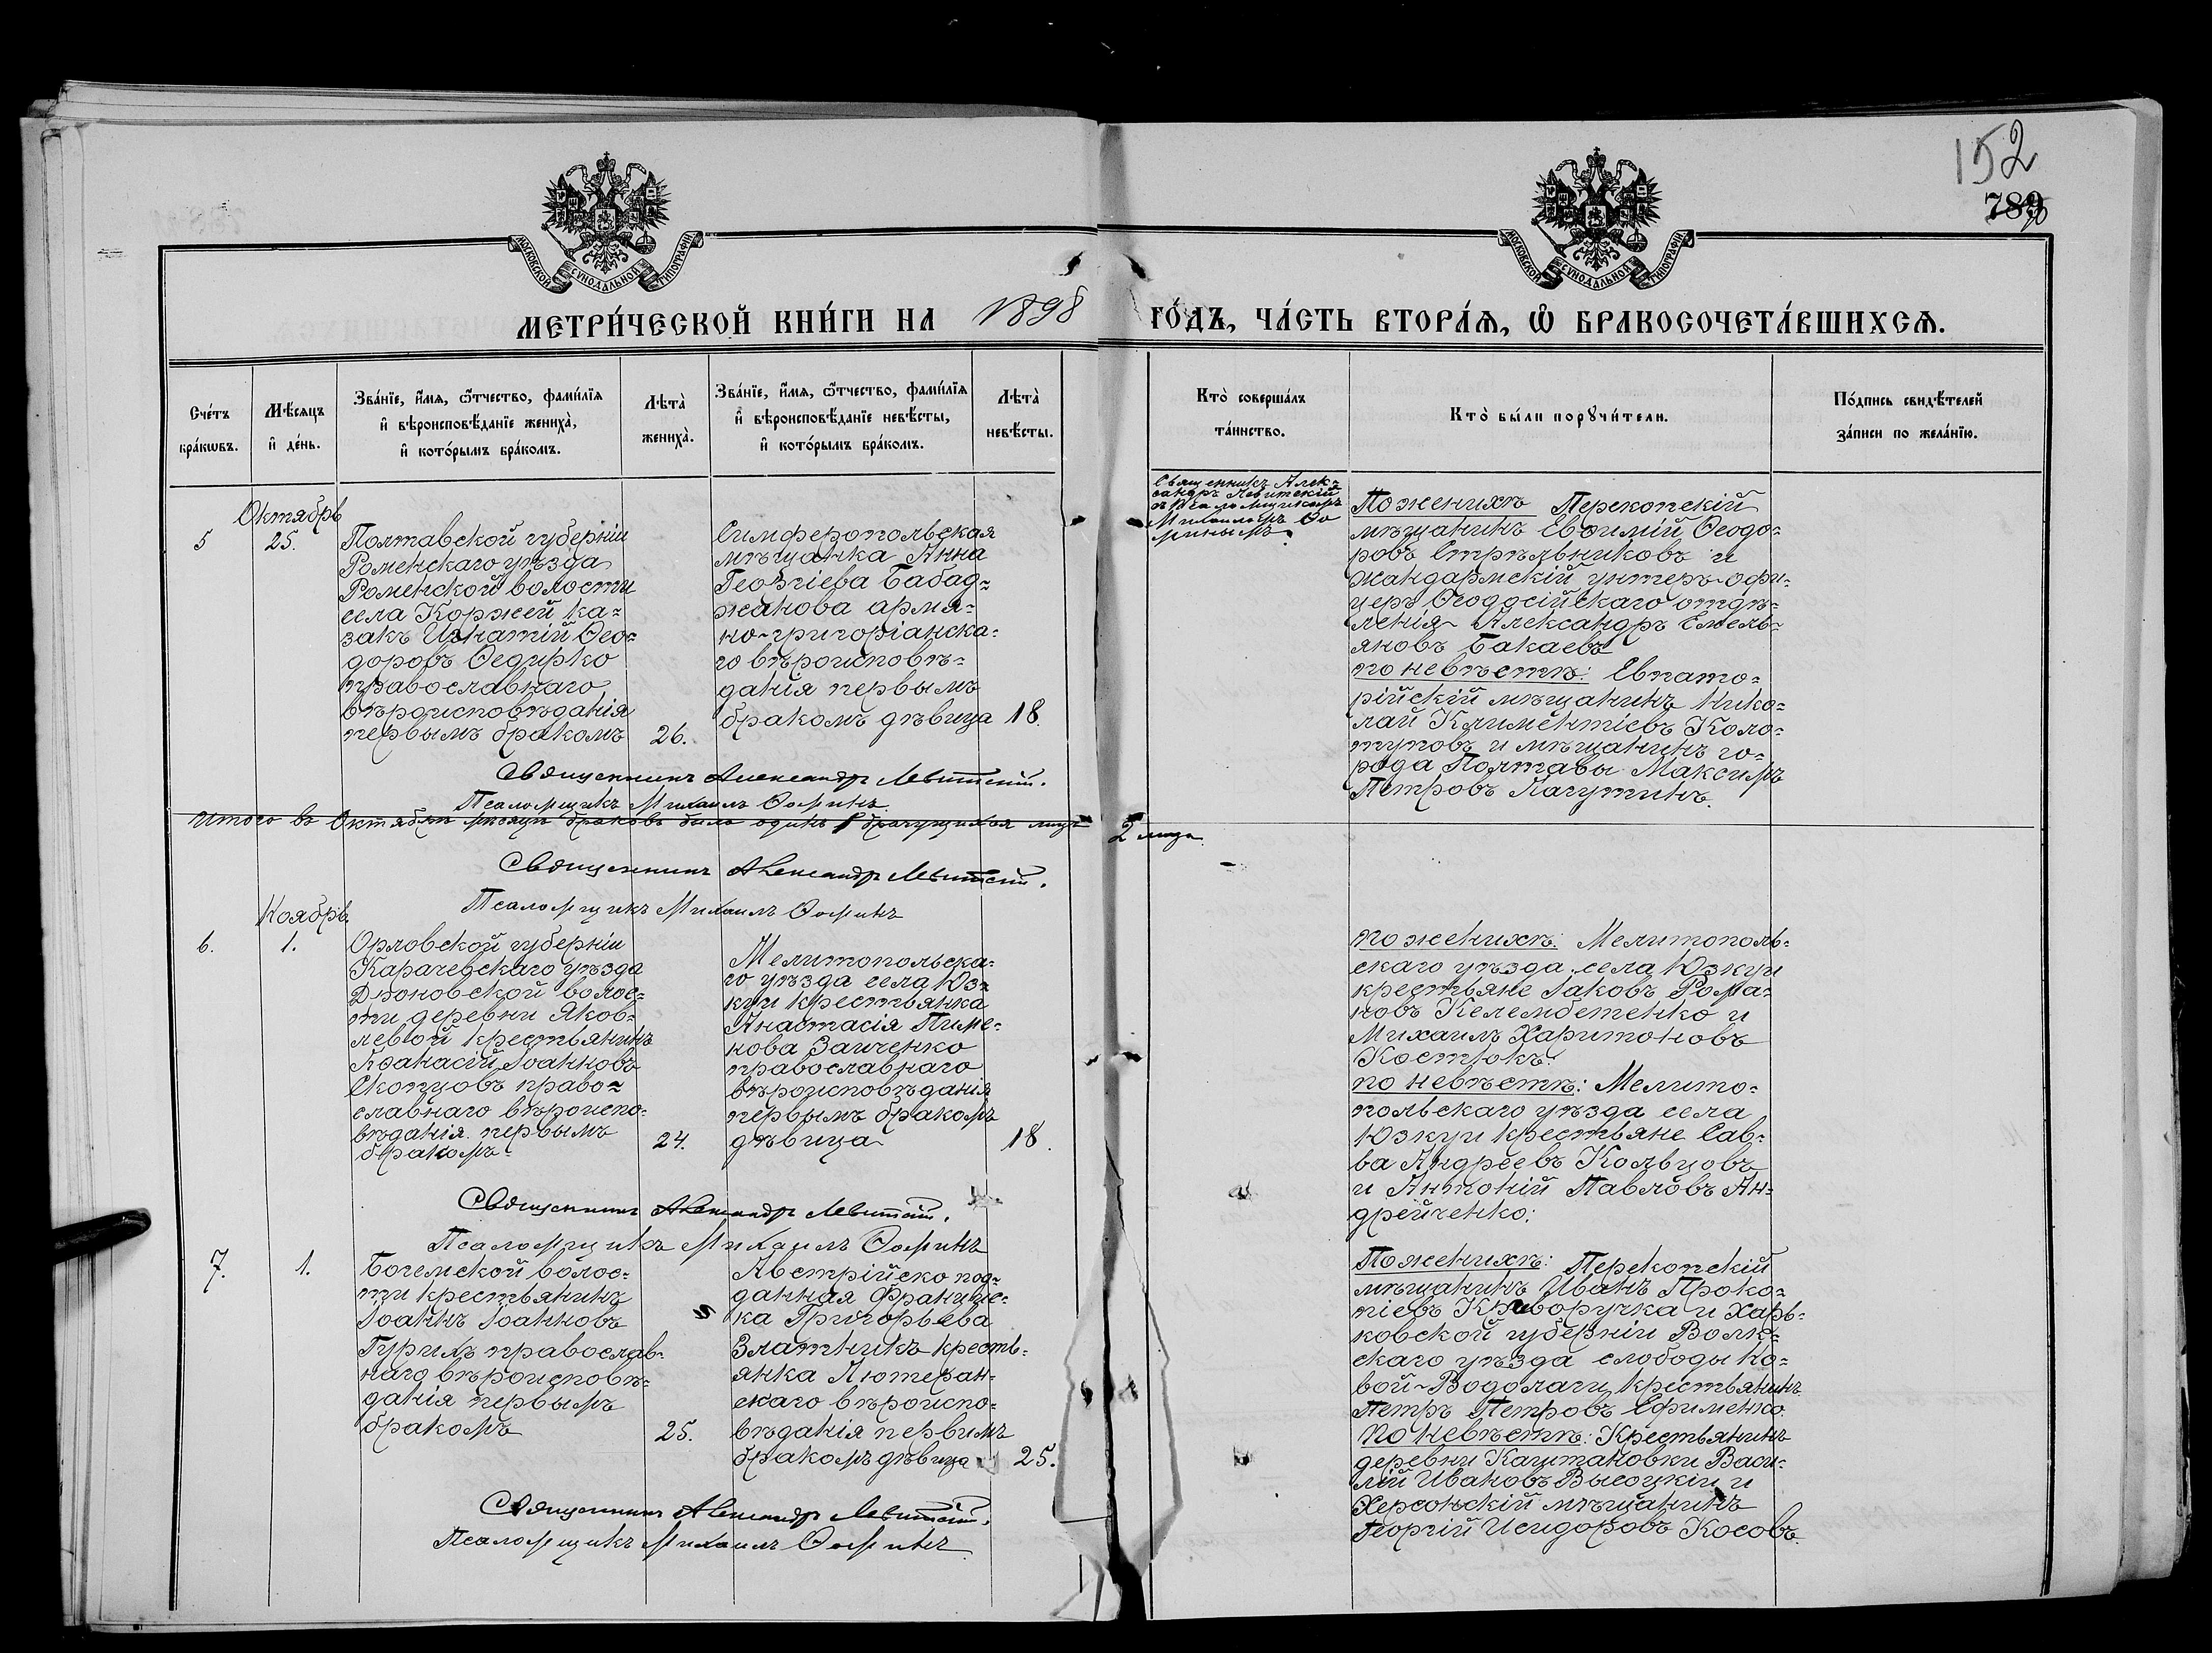 152
789
90
МОСКОВСКОЙ СѴНОДАЛЬНОЙ ТИПОГРАФІИ
МОСКОВСКОЙ СѴНОДАЛЬНОЙ ТИПОГРАФІИ
МЕТРИ́ЧЕСКОЙ КНИ́ГИ НА 1898 ГО́ДЪ, ЧА́СТЬ ВТОРА́Я, Ѽ БРАКОСОЧЕТА́ВШИХСЯ.
Сче́тъ
бра́кѡвъ.
Мѣ́сяцъ
и҆ де́нь.
Зва́нїе, и҆́мя, ѻ҆́тчество, фами́лїя
и҆ вѣроисповѣ́данїе жениха̀,
и҆ кото́рымъ бра́комъ.
Лѣта̀
жениха̀.
Зва́нїе, и҆́мя, ѻ҆́тчество, фами́лїя
и҆ вѣроисповѣ́данїе невѣ́сты,
и҆ кото́рымъ бра́комъ.
Лѣта̀
невѣ́сты.
Кто̀ соверша́лъ
та́инство.
Кто̀ бы́ли порꙋчи́тели.
По́дпись свидѣ́телей
за́писи по жела́нїю.
Октябрь
5
25.
Полтавской губерніи
Роменскаго уѣзда
Роменской волости
села Коржей ка=
закъ Игнатій Ѳео=
доровъ Ѳедирко
православнаго
вѣроисповѣданія
первымъ бракомъ
26.
Симферопольская
мѣщанка Анна
Георгіева Бабад=
жанова армя=
но-григоріанска=
го вѣроисповѣ=
данія первымъ
бракомъ дѣвица
18.
Священникъ Алек=
сандръ Левитскій
съ Псаломщикомъ
Михаиломъ Ѳо
минымъ.
По женихѣ Перекопскій
мѣщанинъ Евѳимій Ѳеодо=
ровъ Стрѣльниковъ и
жандармскій унтеръ-офи=
церъ Ѳеодосійскаго отдѣ=
ленія Александръ Емель=
яновъ Бакаевъ
по невѣстѣ: Евпато=
рійскій мѣщанинъ Нико=
лай Климентіевъ Коло=
туповъ и мѣщанинъ го=
рода Полтавы Максимъ
Петровъ Качутинъ.
Священникъ Александръ Левитскій.
Псаломщикъ Михаилъ Ѳоминъ
Итого въ Октябрѣ мѣсяцѣ браковъ было одинъ 1 брачущихся лицъ 2 лица.
Священникъ Александръ Левитскій.
Псаломщикъ Михаилъ Ѳоминъ
Ноябрь
6.
1.
Орловской губерніи
Карачевскаго уѣзда
Дроновской волос=
ти деревни Яков=
левой крестьянинъ
Аѳанасій Іоанновъ
Скопцовъ право=
славнаго вѣроиспо=
вѣданія первымъ
бракомъ
24.
Мелитопольска=
го уѣзда села Юз=
куи крестьянка
Анастасія Пиме=
нова Заиченко
православнаго
вѣроисповѣданія
первымъ бракомъ
дѣвица
18.
по женихѣ: Мелитополь=
скаго уѣзда села Юзкуи
крестьяне Іаковъ Рома=
новъ Келембетенко и
Михаилъ Харитоновъ
Костюкъ.
по невѣстѣ: Мелито=
польскаго уѣзда села
Юзкуи крестьяне Сав=
ва Андреевъ Кольцовъ
и Антоній Павловъ Ан=
дрейченко.
Священникъ Александръ Левитскій.
Псаломщикъ Михаилъ Ѳоминъ
7.
1.
Богемской волос=
ти крестьянинъ
Іоаннъ Іоанновъ
Гурихъ православ=
наго вѣроисповѣ=
данія первымъ
бракомъ
25.
Австрійско под=
данная Францис=
ка Григорьева
Златникъ кресть=
янка Лютеран=
скаго вѣроиспо=
вѣданія первымъ
бракомъ дѣвица
25.
По женихѣ: Перекопскій
мѣщанинъ Иванъ Проко=
піевъ Криворучка и Харь=
ковской губерніи Волк=
скаго уѣзда слободы Но=
вой-Водолаги крестьянинъ
Петръ Петровъ Ефименко.
По невѣстѣ: Крестьянинъ
деревни Каштановки Васи=
лій Ивановъ Высоцкій и
Херсонскій мѣщанинъ
Георгій Исидоровъ Косовъ.
Священникъ Александръ Левитскій.
Псаломщикъ Михаилъ Ѳоминъ